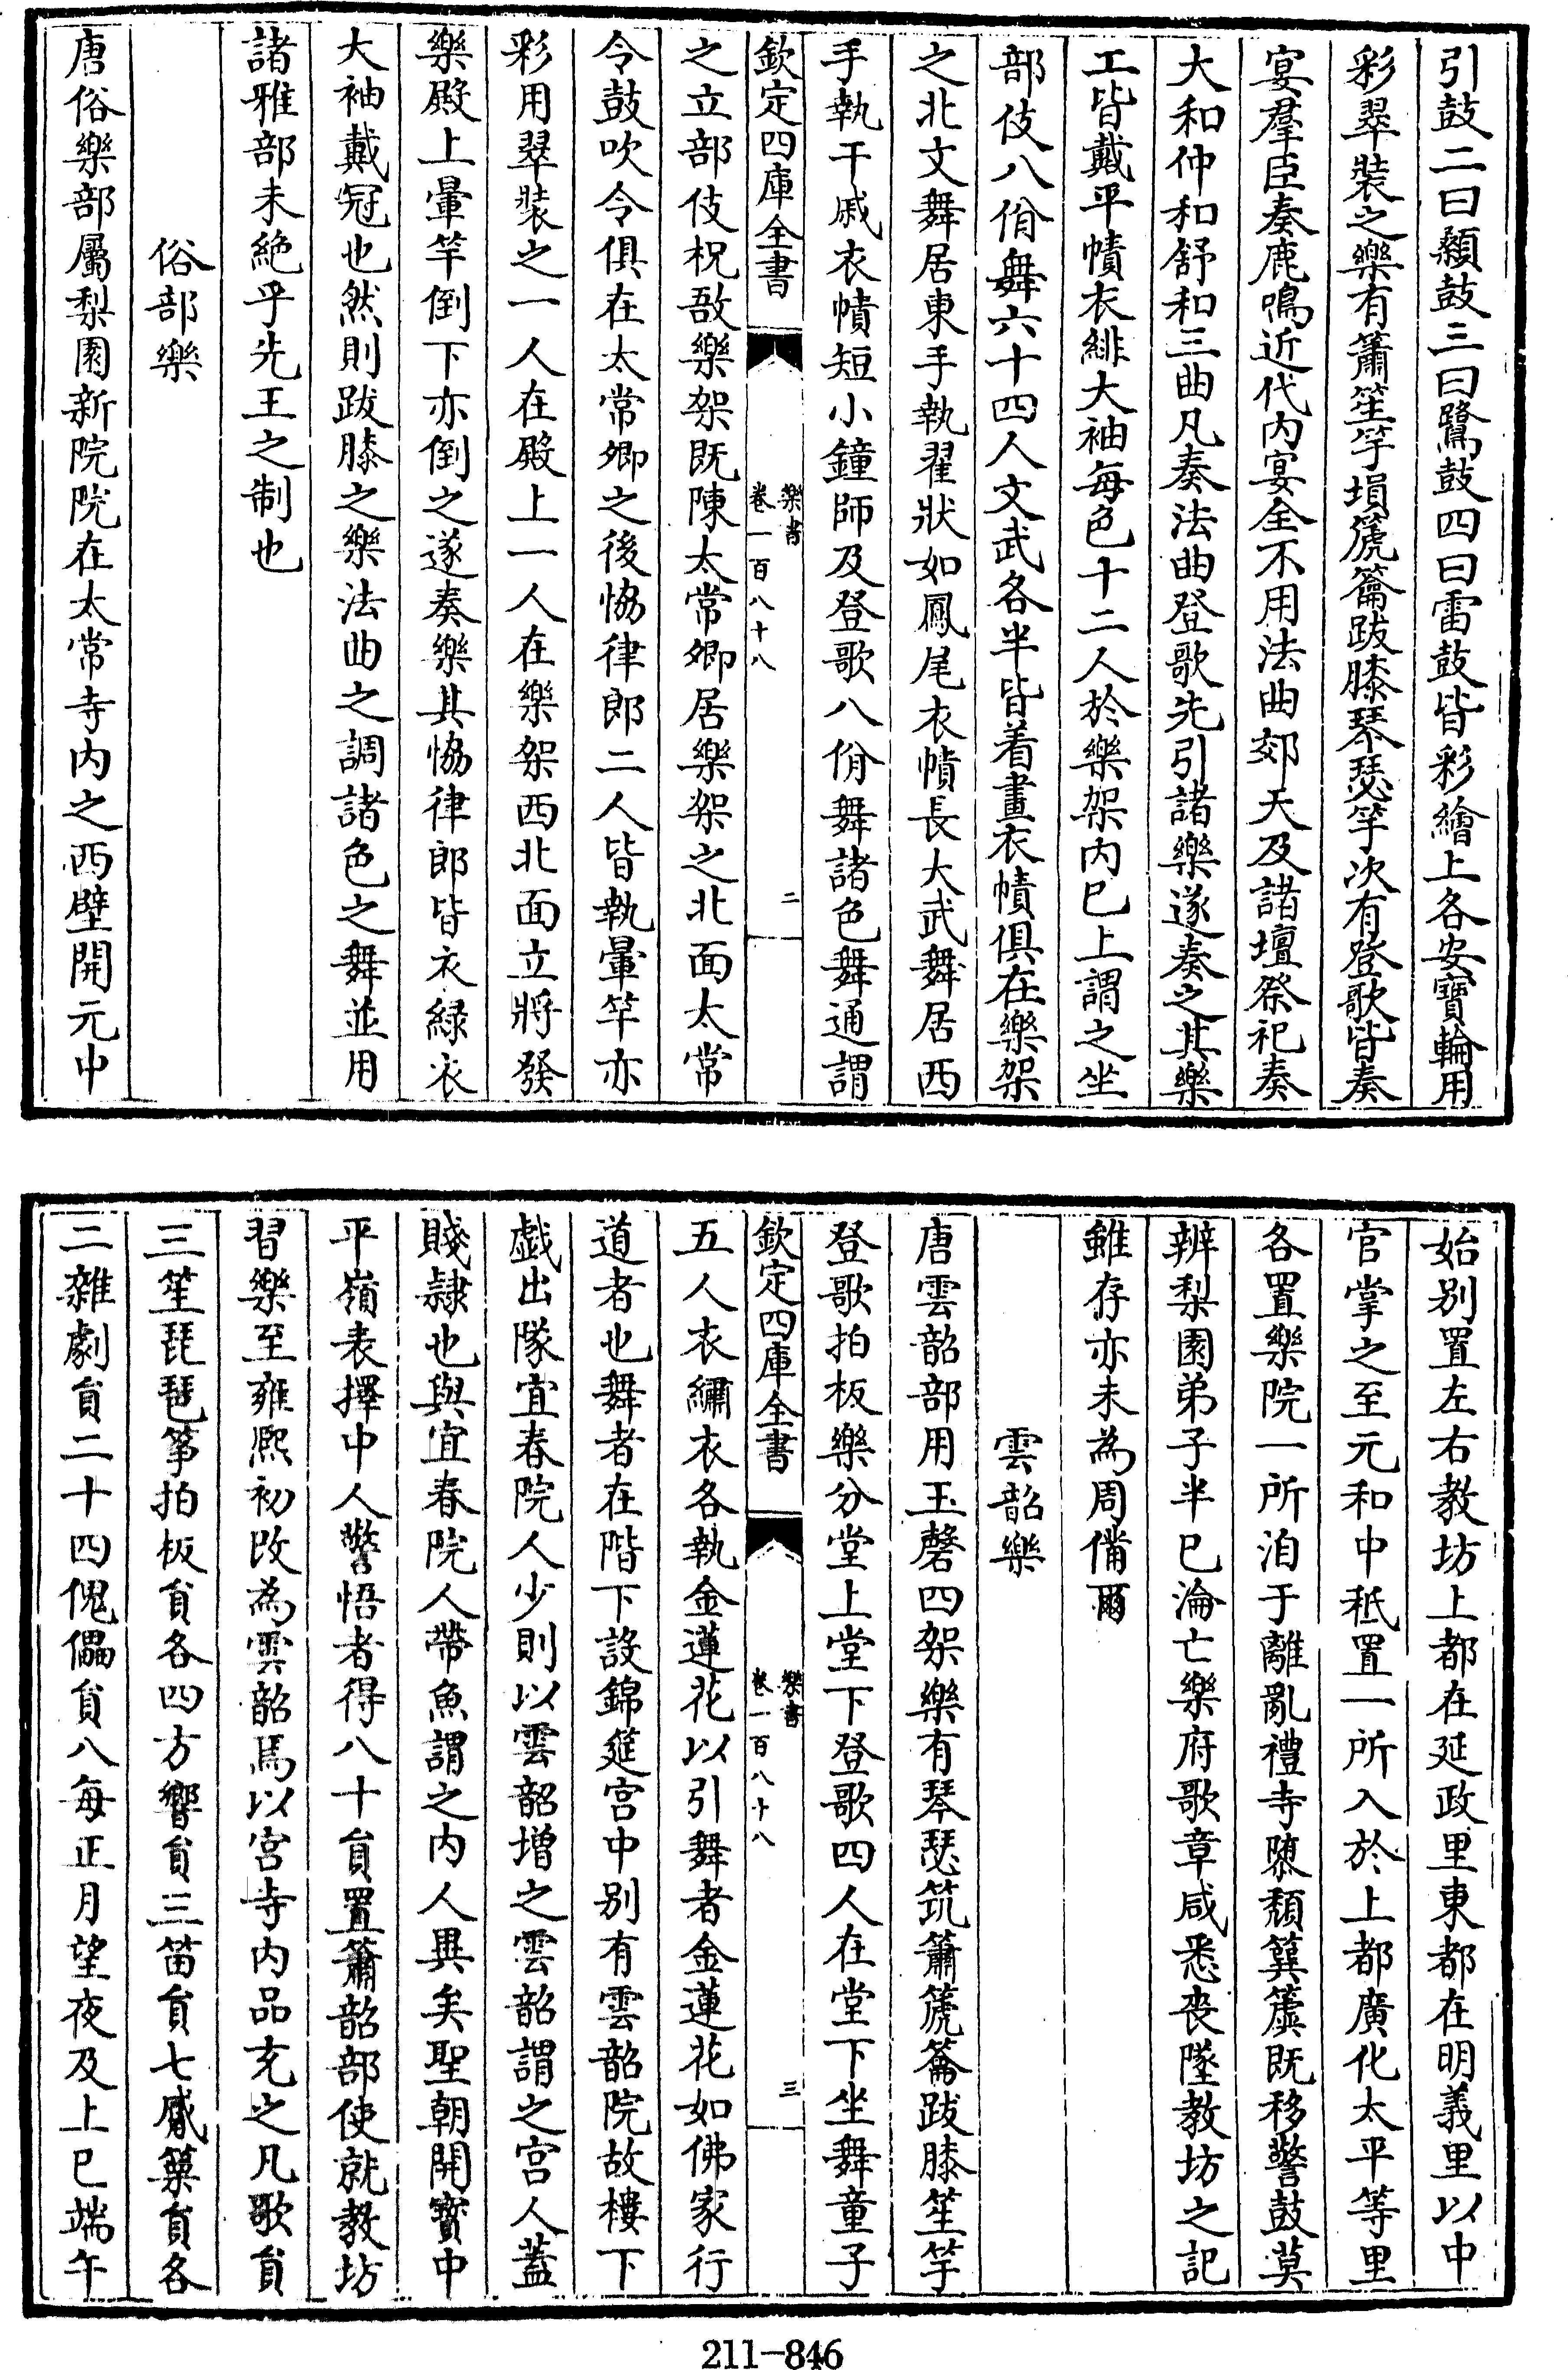 引鼓二曰顙鼓三曰鷺鼓四曰雷鼓皆彩繪上各安寶輪用
彩翠裝之樂有簫笙竽塤篪籥跋膝琴瑟竽次有登歌皆奏
宴羣臣奏鹿鳴近代内宴全不用法曲郊天及諸壇祭祀奏
大和仲和舒和三曲凡奏法曲登歌先引諸樂遂奏之其樂
工皆戴平幘衣緋大袖每色十二人於樂架内已上謂之坐
部伎八佾舞六十四人文武各半皆着畫衣幘俱在樂架
之北文舞居東手執翟狀如鳳尾衣幘長大武舞居西
手執干戚衣幘短小鐘師及登歌八佾舞諸色舞通謂
欽定四庫全書
樂書
卷一百八十八
二
之立部伎柷敔樂架既陳太常卿居樂架之北面太常
令鼓吹令俱在太常卿之後恊律郎二人皆執暈竿亦
彩用翠裝之一人在殿上一人在樂架西北面立將發
樂殿上暈竿倒下亦倒之遂奏樂其恊律郎皆衣緑衣
大袖戴冠也然則跋膝之樂法曲之調諸色之舞並用
諸雅部未絶乎先王之制也
俗部樂
唐俗樂部屬梨園新院院在太常寺内之西壁開元中
始别置左右教坊上都在延政里東都在明義里以中
官掌之至元和中秪置一所入於上都廣化太平等里
各置樂院一所洎于離亂禮寺隳頽簨簴既移警鼓莫
辨梨園弟子半已淪亡樂府歌章咸悉喪墜教坊之記
雖存亦未為周備爾
雲韶樂
唐雲韶部用玉磬四架樂有琴瑟筑簫篪籥跋膝笙竽
登歌拍板樂分堂上堂下登歌四人在堂下坐舞童子
欽定四庫全書
樂書
卷一百八十八
三
五人衣繡衣各執金蓮花以引舞者金蓮花如佛家行
道者也舞者在階下設錦筵宫中别有雲韶院故樓下
戯出隊宜春院人少則以雲韶增之雲韶謂之宫人蓋
賤隷也與宜春院人帶魚謂之内人異矣聖朝開寶中
平嶺表擇中人警悟者得八十員置簫韶部使就教坊
習樂至雍熙初改為雲韶焉以宫寺内品充之凡歌員
三笙琵琶箏拍板員各四方響員三笛員七觱篥員各
二雜劇員二十四傀儡員八每正月望夜及上巳端午
211-846